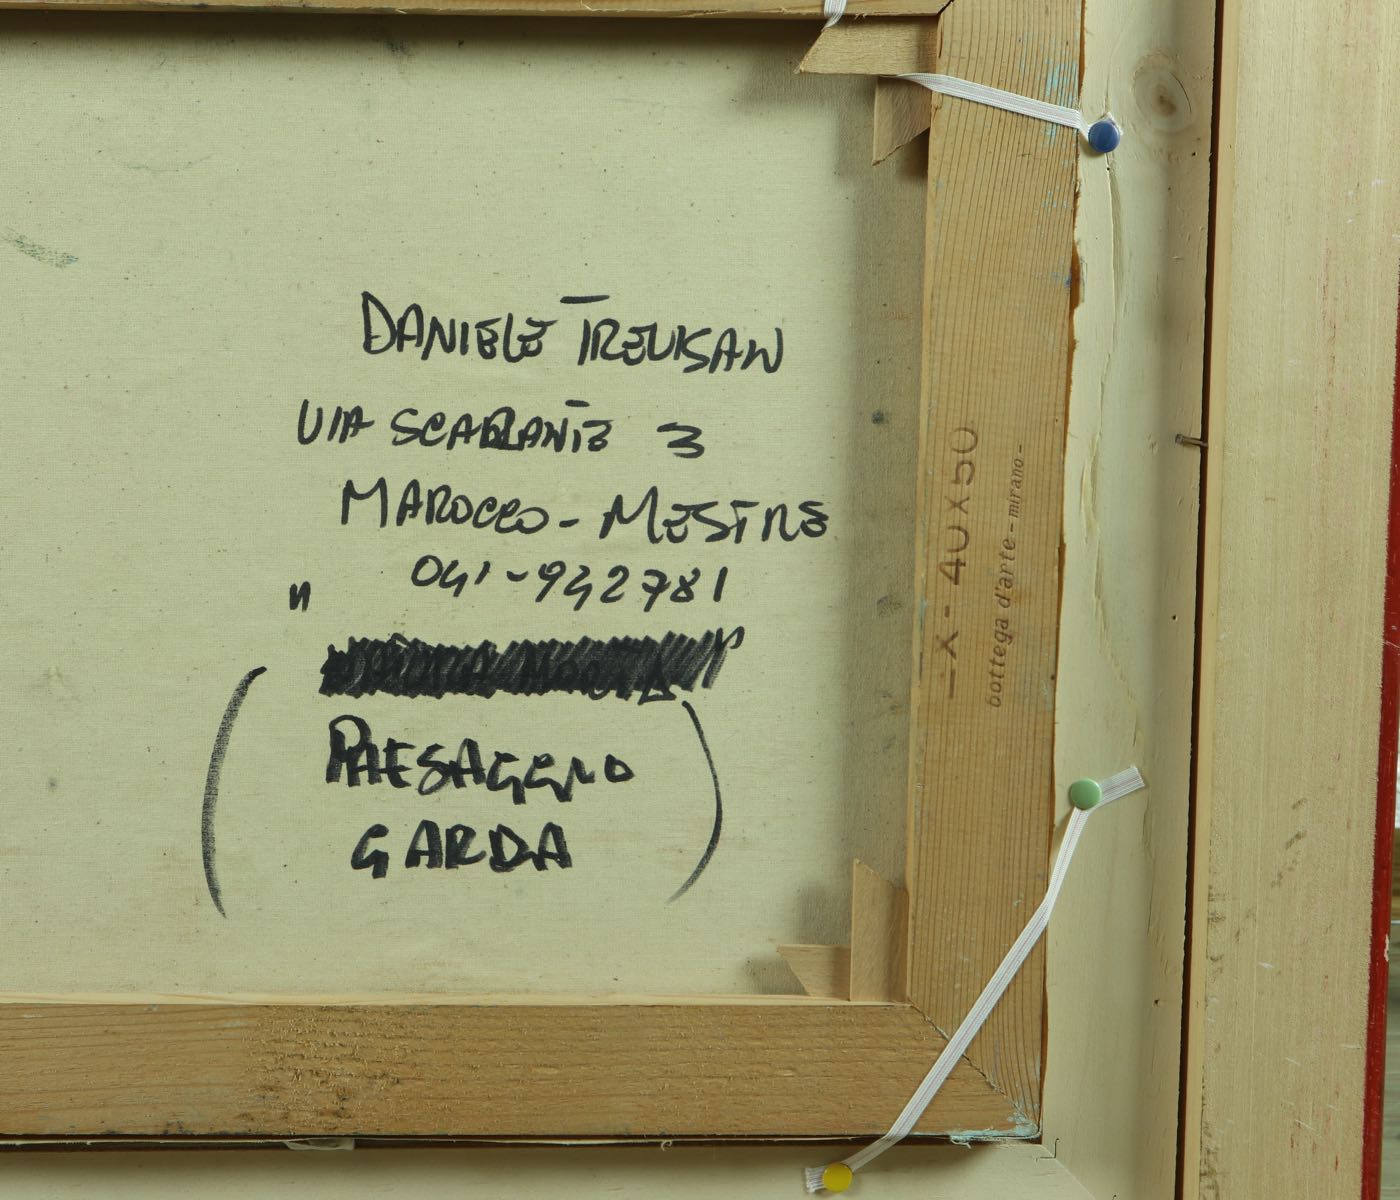 DANIELE TREVISAN
VIA SCARANTE 3
MAROCCO - MESTRE
041-942781
"
PAESAGGIO
GARDA
-X- 40X50
bottega d'arte - mirano -